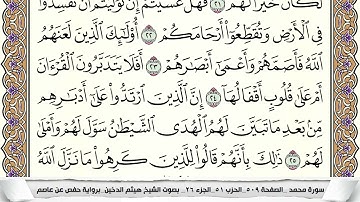 لَكَانَ خَيْرًا لَّهُمْ ٢١ فَهَلْ عَسَيْتُمْ إِن تَوَلَّيْتُمْ أَن تُفْسِدُوا۟
فِى ٱلْأَرْضِ وَتُقَطِّعُوٓا۟ أَرْحَامَكُمْ ٢٢ أُو۟لَٰٓئِكَ ٱلَّذِينَ لَعَنَهُمُ
ٱللَّهُ فَأَصَمَّهُمْ وَأَعْمَىٰٓ أَبْصَٰرَهُمْ ٢٣ أَفَلَا يَتَدَبَّرُونَ ٱلْقُرْءَانَ
أَمْ عَلَىٰ قُلُوبٍ أَقْفَالُهَآ ٢٤ إِنَّ ٱلَّذِينَ ٱرْتَدُّوا۟ عَلَىٰٓ أَدْبَٰرِهِم
مِّنۢ بَعْدِ مَا تَبَيَّنَ لَهُمُ ٱلْهُدَى ٱلشَّيْطَٰنُ سَوَّلَ لَهُمْ وَأَمْلَىٰ
لَهُمْ ٢٥ ذَٰلِكَ بِأَنَّهُمْ قَالُوا۟ لِلَّذِينَ كَرِهُوا۟ مَا نَزَّلَ ٱللَّهُ
سورة محمد _ الصفحة ٥٠٩ _ الحزب ٥١ _ الجزء ٢٦ _ بصوت الشيخ هيثم الدخين _ برواية حفص عن عاصم